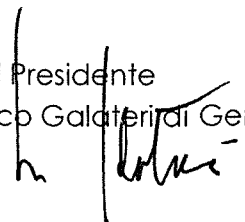 Presidente
co Galateri di Gen